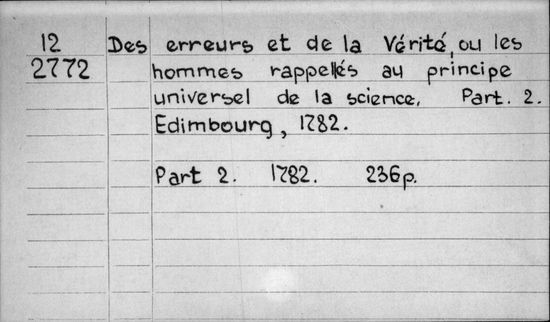 12 Des erreurs et de la Vérité, ou les
2772 hommes rappellés au principe
universel de la science. Part. 2.
Edimbourg, 1782.
Part 2. 1782. 236p.